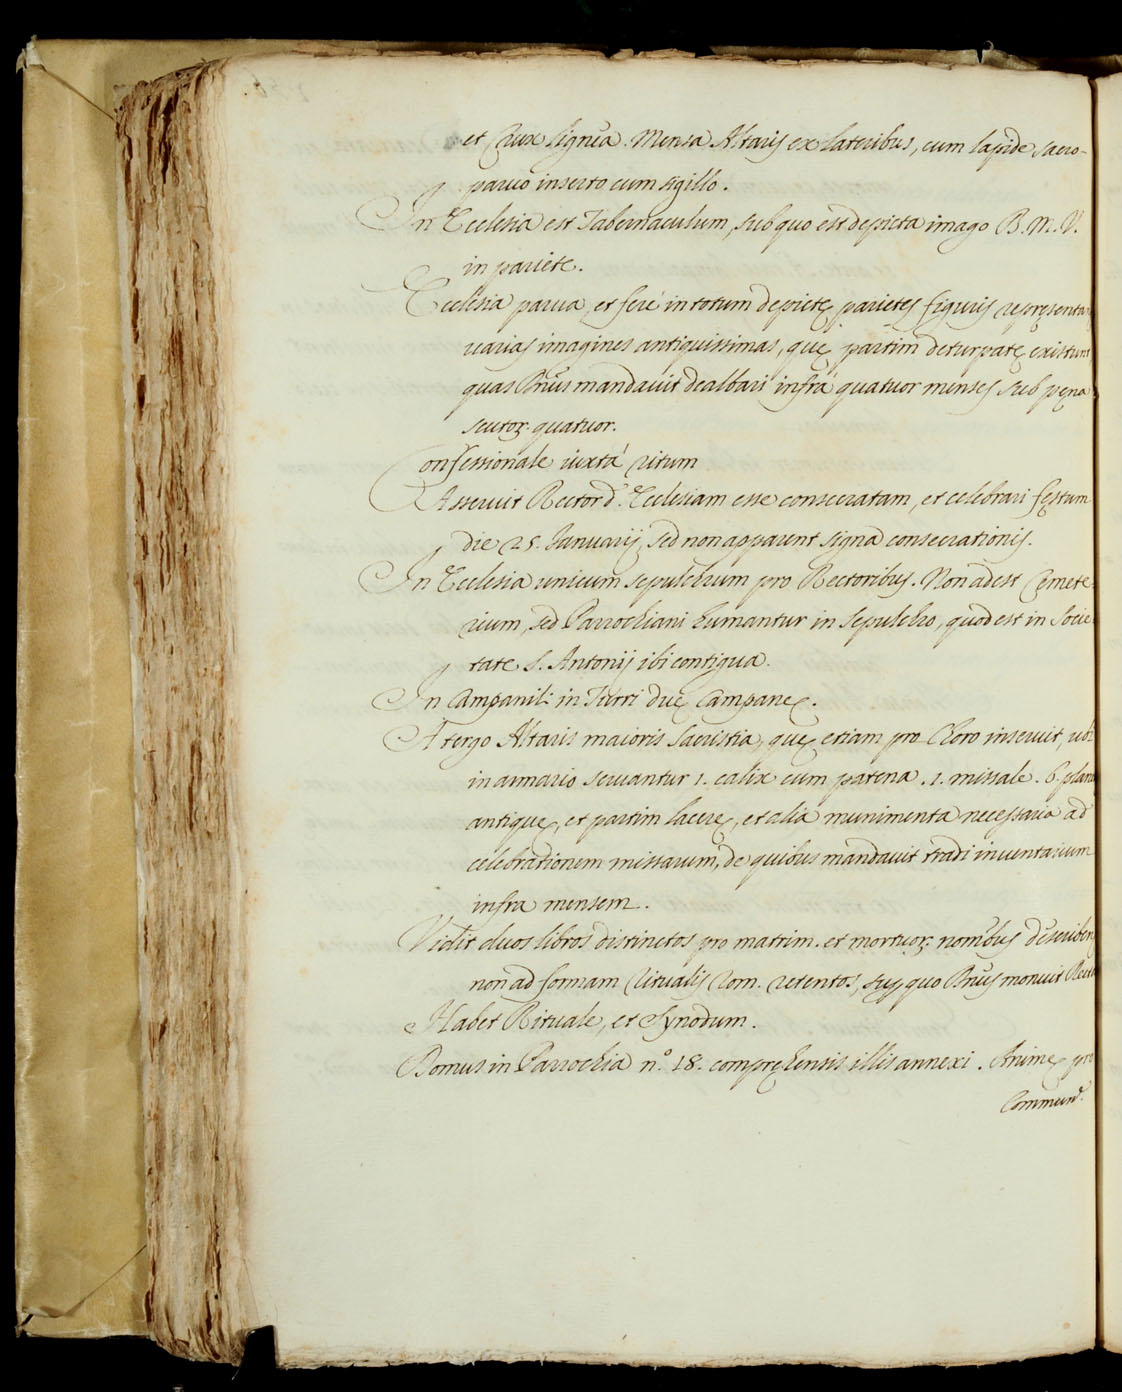 et Crux lignea. Mensa Altaris ex lateribus, cum lapide sacro-
paruo inserto cum sigillo.
In Ecclesia est Tabernaculum, sub quo est depicta imago B. M. V.
in pariete.
Ecclesia parua, et ferè in totum depictę parietes figuris repręsenta
uarias imagines antiquissimas, quę partim deturpatę existunt
quas Dnūs mandauit dealbari infrà quatuor menses sub pęna
scutoꝝ. quatuor.
Confessionale iuxtà ritum
Asseruit Rector d. Ecclesiam esse consecratam, et celebrari festum
die 25. Ianuarij, sed non apparent signa consecrationis.
In Ecclesia unicum sepulchrum pro Rectoribus. Non adest Cęmete-
rium, sed Parrochiani humantur in sepulchro, quod est in Socie
tate S. Antonij ibi contigua.
In Campanili in Turri duę Campanę.
A tergo Altaris maioris Sacristia, quę etiam pro Choro inseruit, ubi
in armario seruantur 1. calix cum patena. 1. missale. 6. plan
antiquę, et partim lacerę, et alia munimenta necessaria ad
celebrationem missarum, de quibus mandauit tradi inuentarium
infra mensem.
Vidit duos libros distinctos pro matrim. et mortuoꝝ. nomībus describen
non ad formam Ritualis Rom. retentos, sup quo Dnūs monuit Rect
Habet Rituale, et Synodum.
Domus in Parrochia n.º 18. compręhensis illis annexi. Animę pro
Commun.